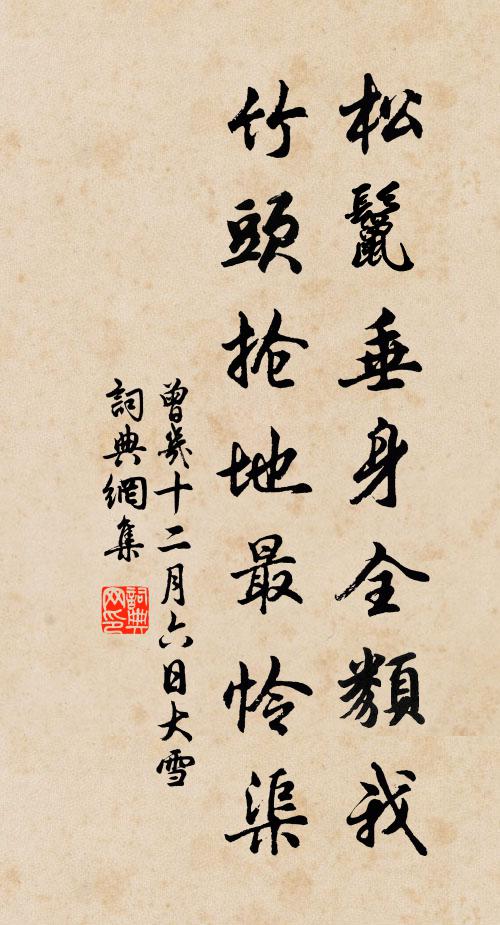 松鬣垂身全類我
竹頭搶地最怜渠
曾幾十二月六日大雪
詞典網集
詞典网印